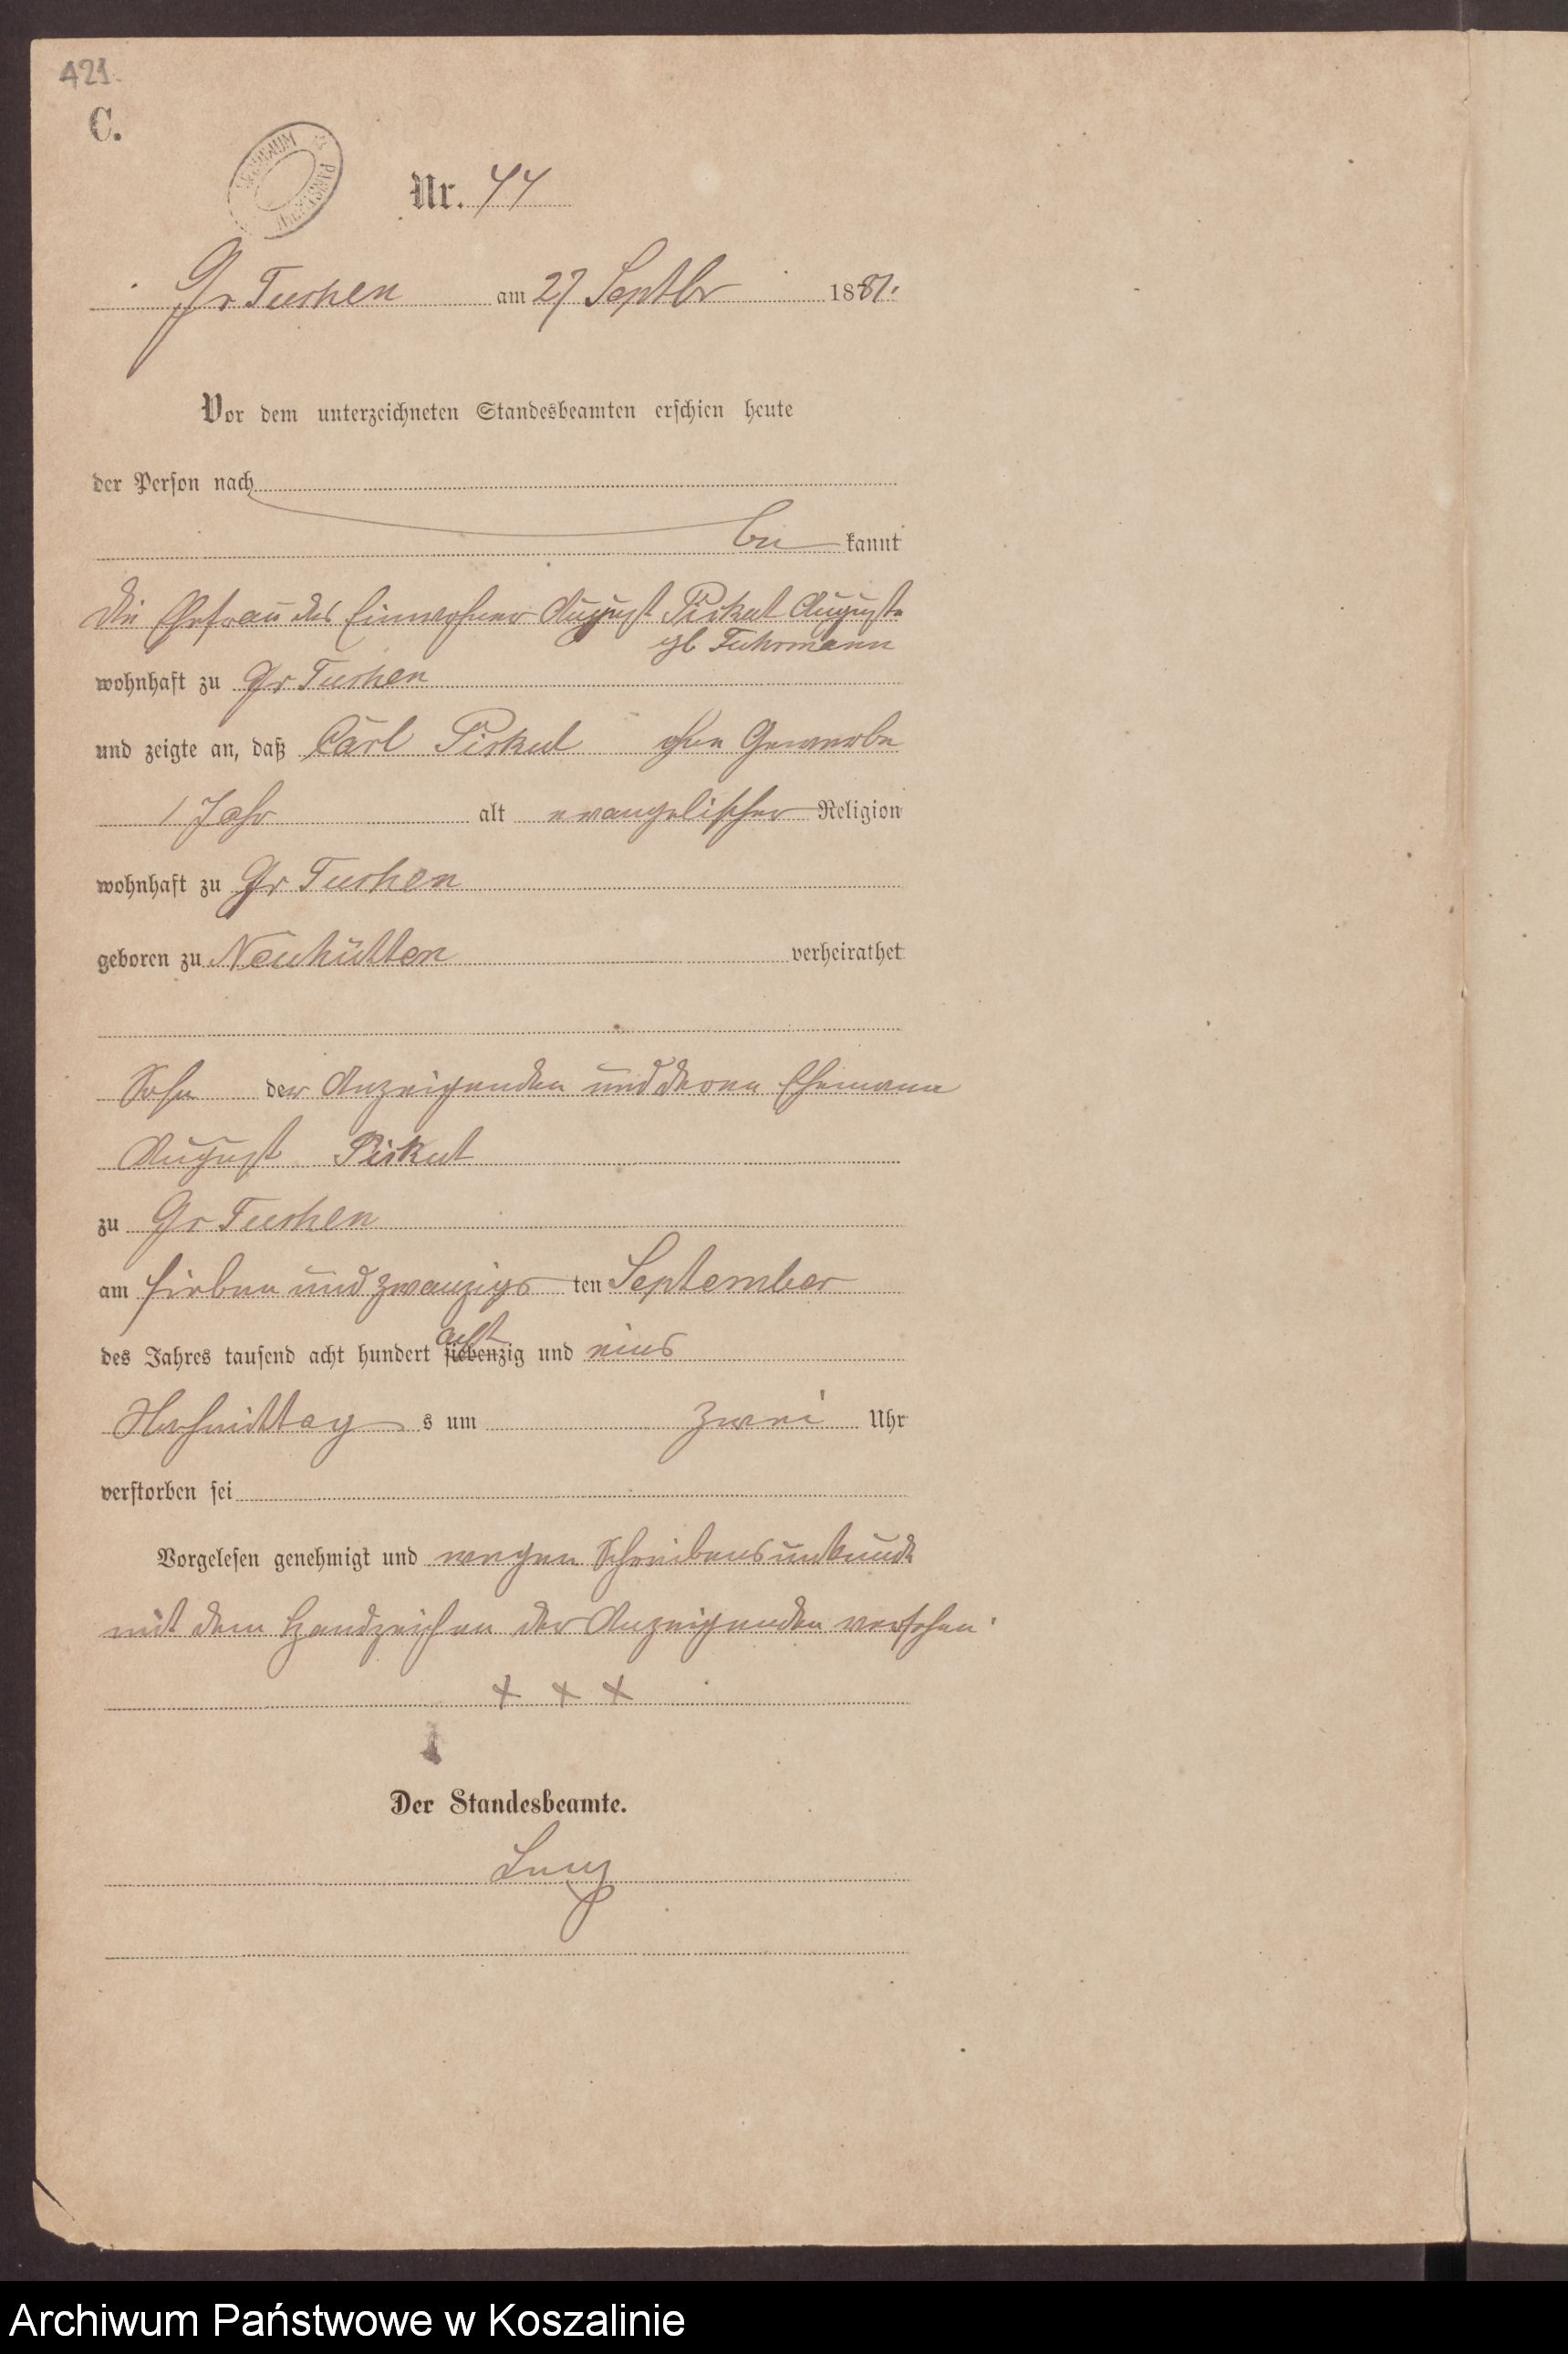 421.
C.
ARCHIWUM PAŃSTWOWE
Nr. 44
Gr Tuchen am 27 Septbr 1881.
Vor dem unterzeichneten Standesbeamten erschien heute
der Person nach
be kannt
die Ehefrau des Einwohner August Piskut Auguste
gb Fuhrmann
wohnhaft zu Gr Tuchen
und zeigte an, daß Carl Piskut ohne Gewerbe
1 Jahr alt evangelischer Religion
wohnhaft zu Gr Tuchen
geboren zu Neuhütten verheirathet
Sohn der Anzeigenden und deren Ehemann
August Piskut
zu Gr Tuchen
am sieben und zwanzigs ten September
des Jahres tausend acht hundert siebenzig acht und eins
Nachmittag s um zwei Uhr
verstorben sei
Vorgelesen genehmigt und wegen Schreibensunkunde
mit dem Handzeichen der Anzeigenden versehen
+ + +
Der Standesbeamte.
Archiwum Państwowe w Koszalinie